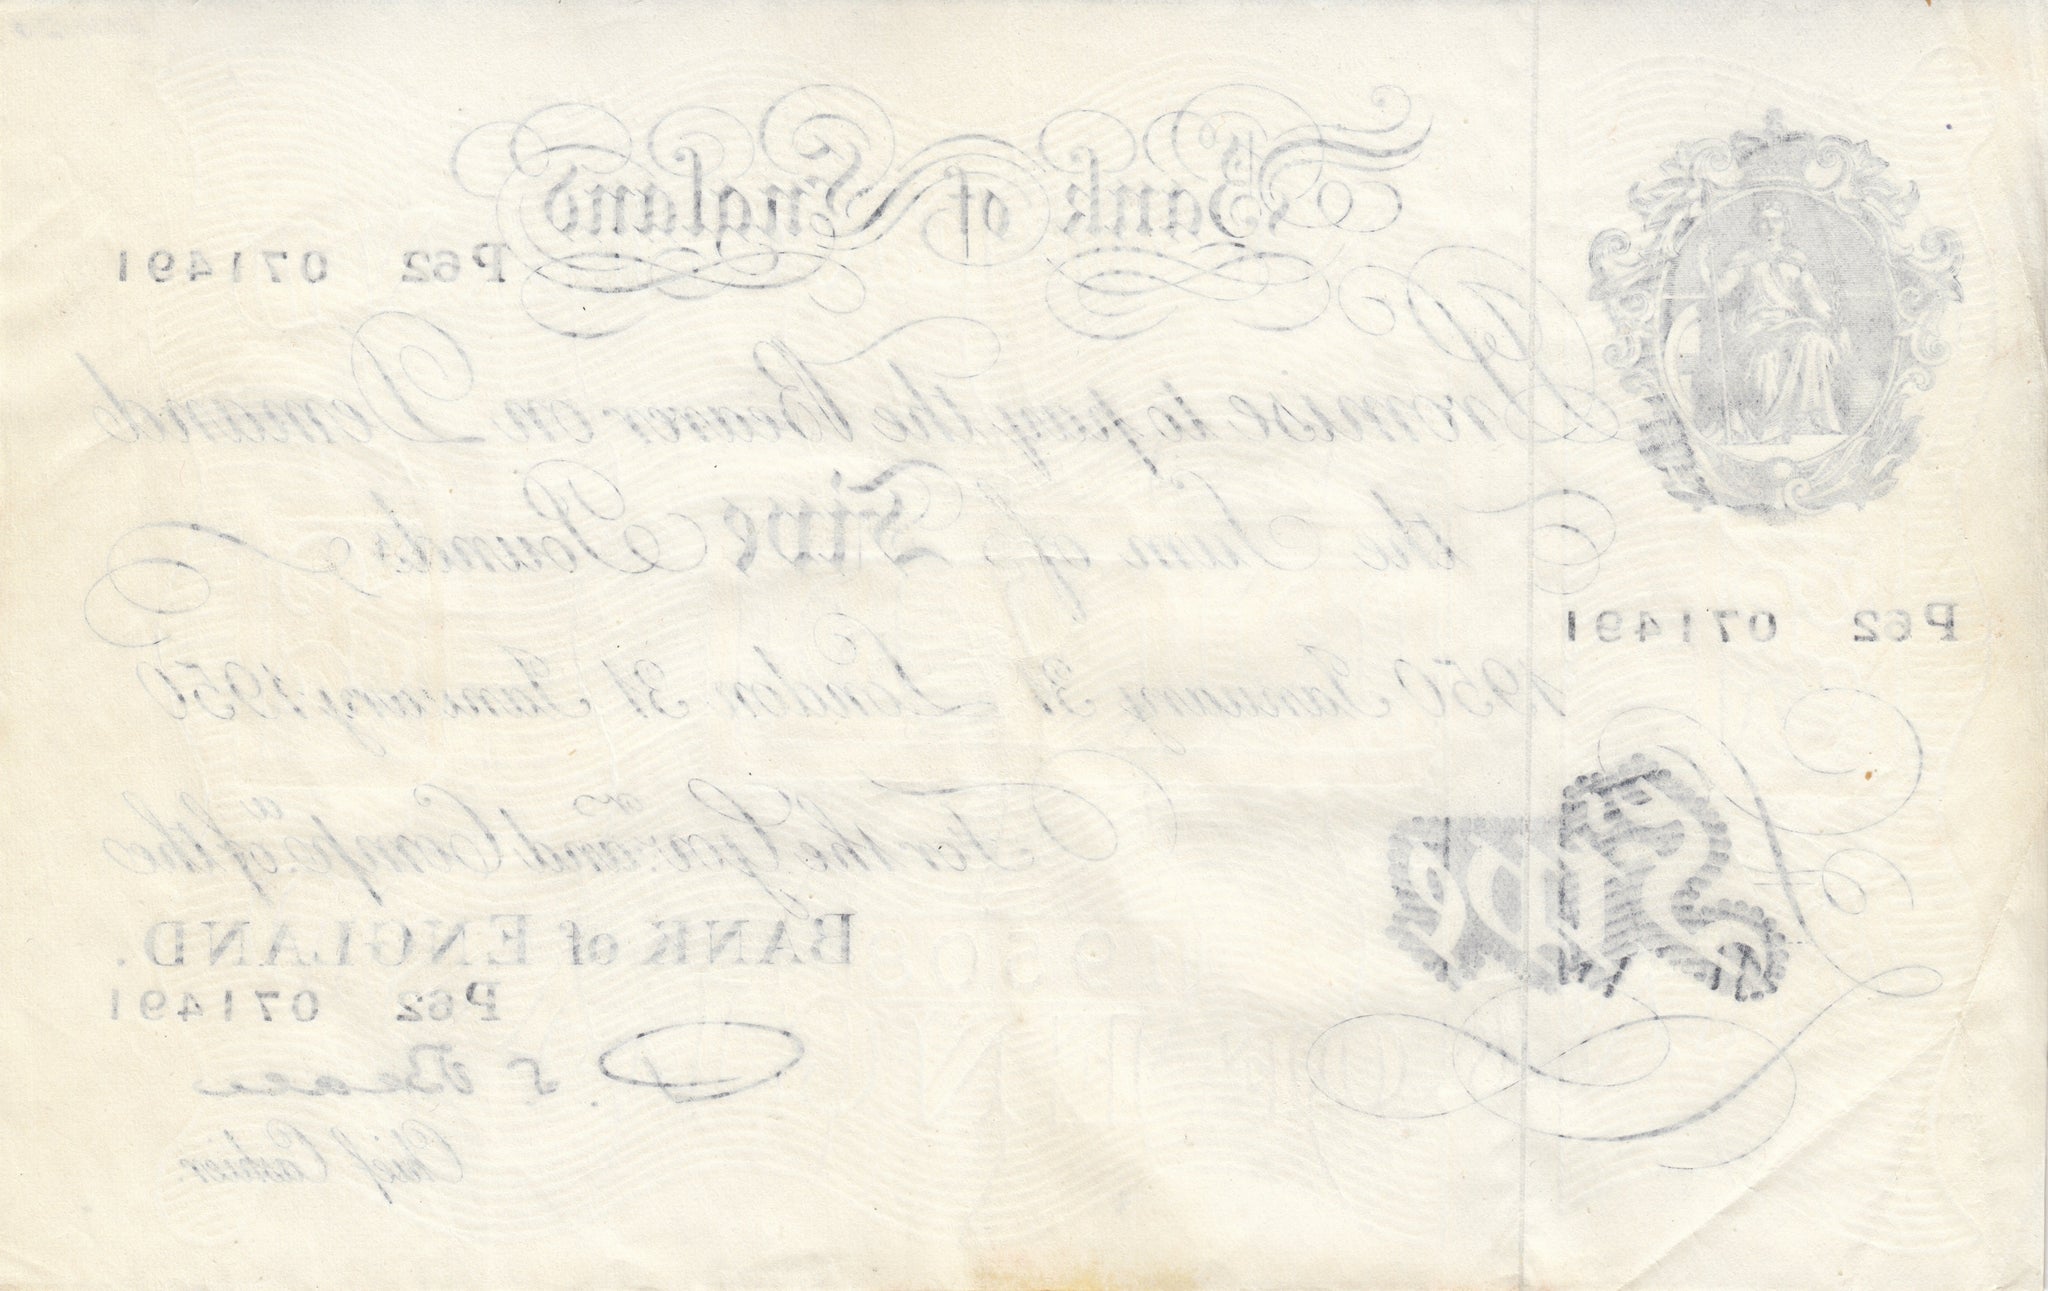 Bank of England
P62 071491
Promise to pay the Bearer on Demand
the Sum of Five Pounds
P62 071491
1950 January 31 London 31 January 1950
For the Govr. and Compa. of the
Five
BANK of ENGLAND.
P62 071491
Chief Cashier.